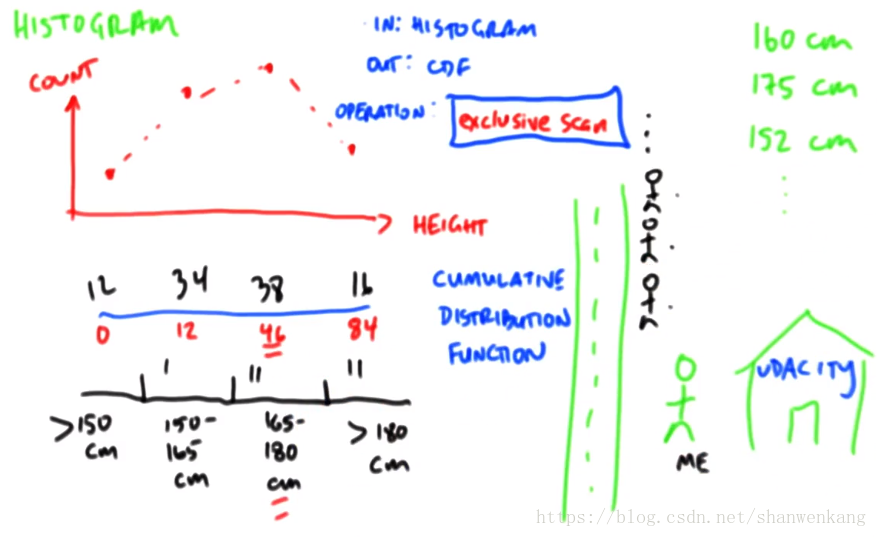 HISTOGRAM
COUNT
HEIGHT
IN: HISTOGRAM
OUT: CDF
OPERATION:
exclusive scan
160 cm
175 cm
152 cm
12 34 38 16
0 12 46 84
CUMULATIVE
DISTRIBUTION
FUNCTION
I II II
>150 cm
150-165 cm
165-180 cm
>180 cm
UDACITY
ME
https://blog.csdn.net/shanwenkang